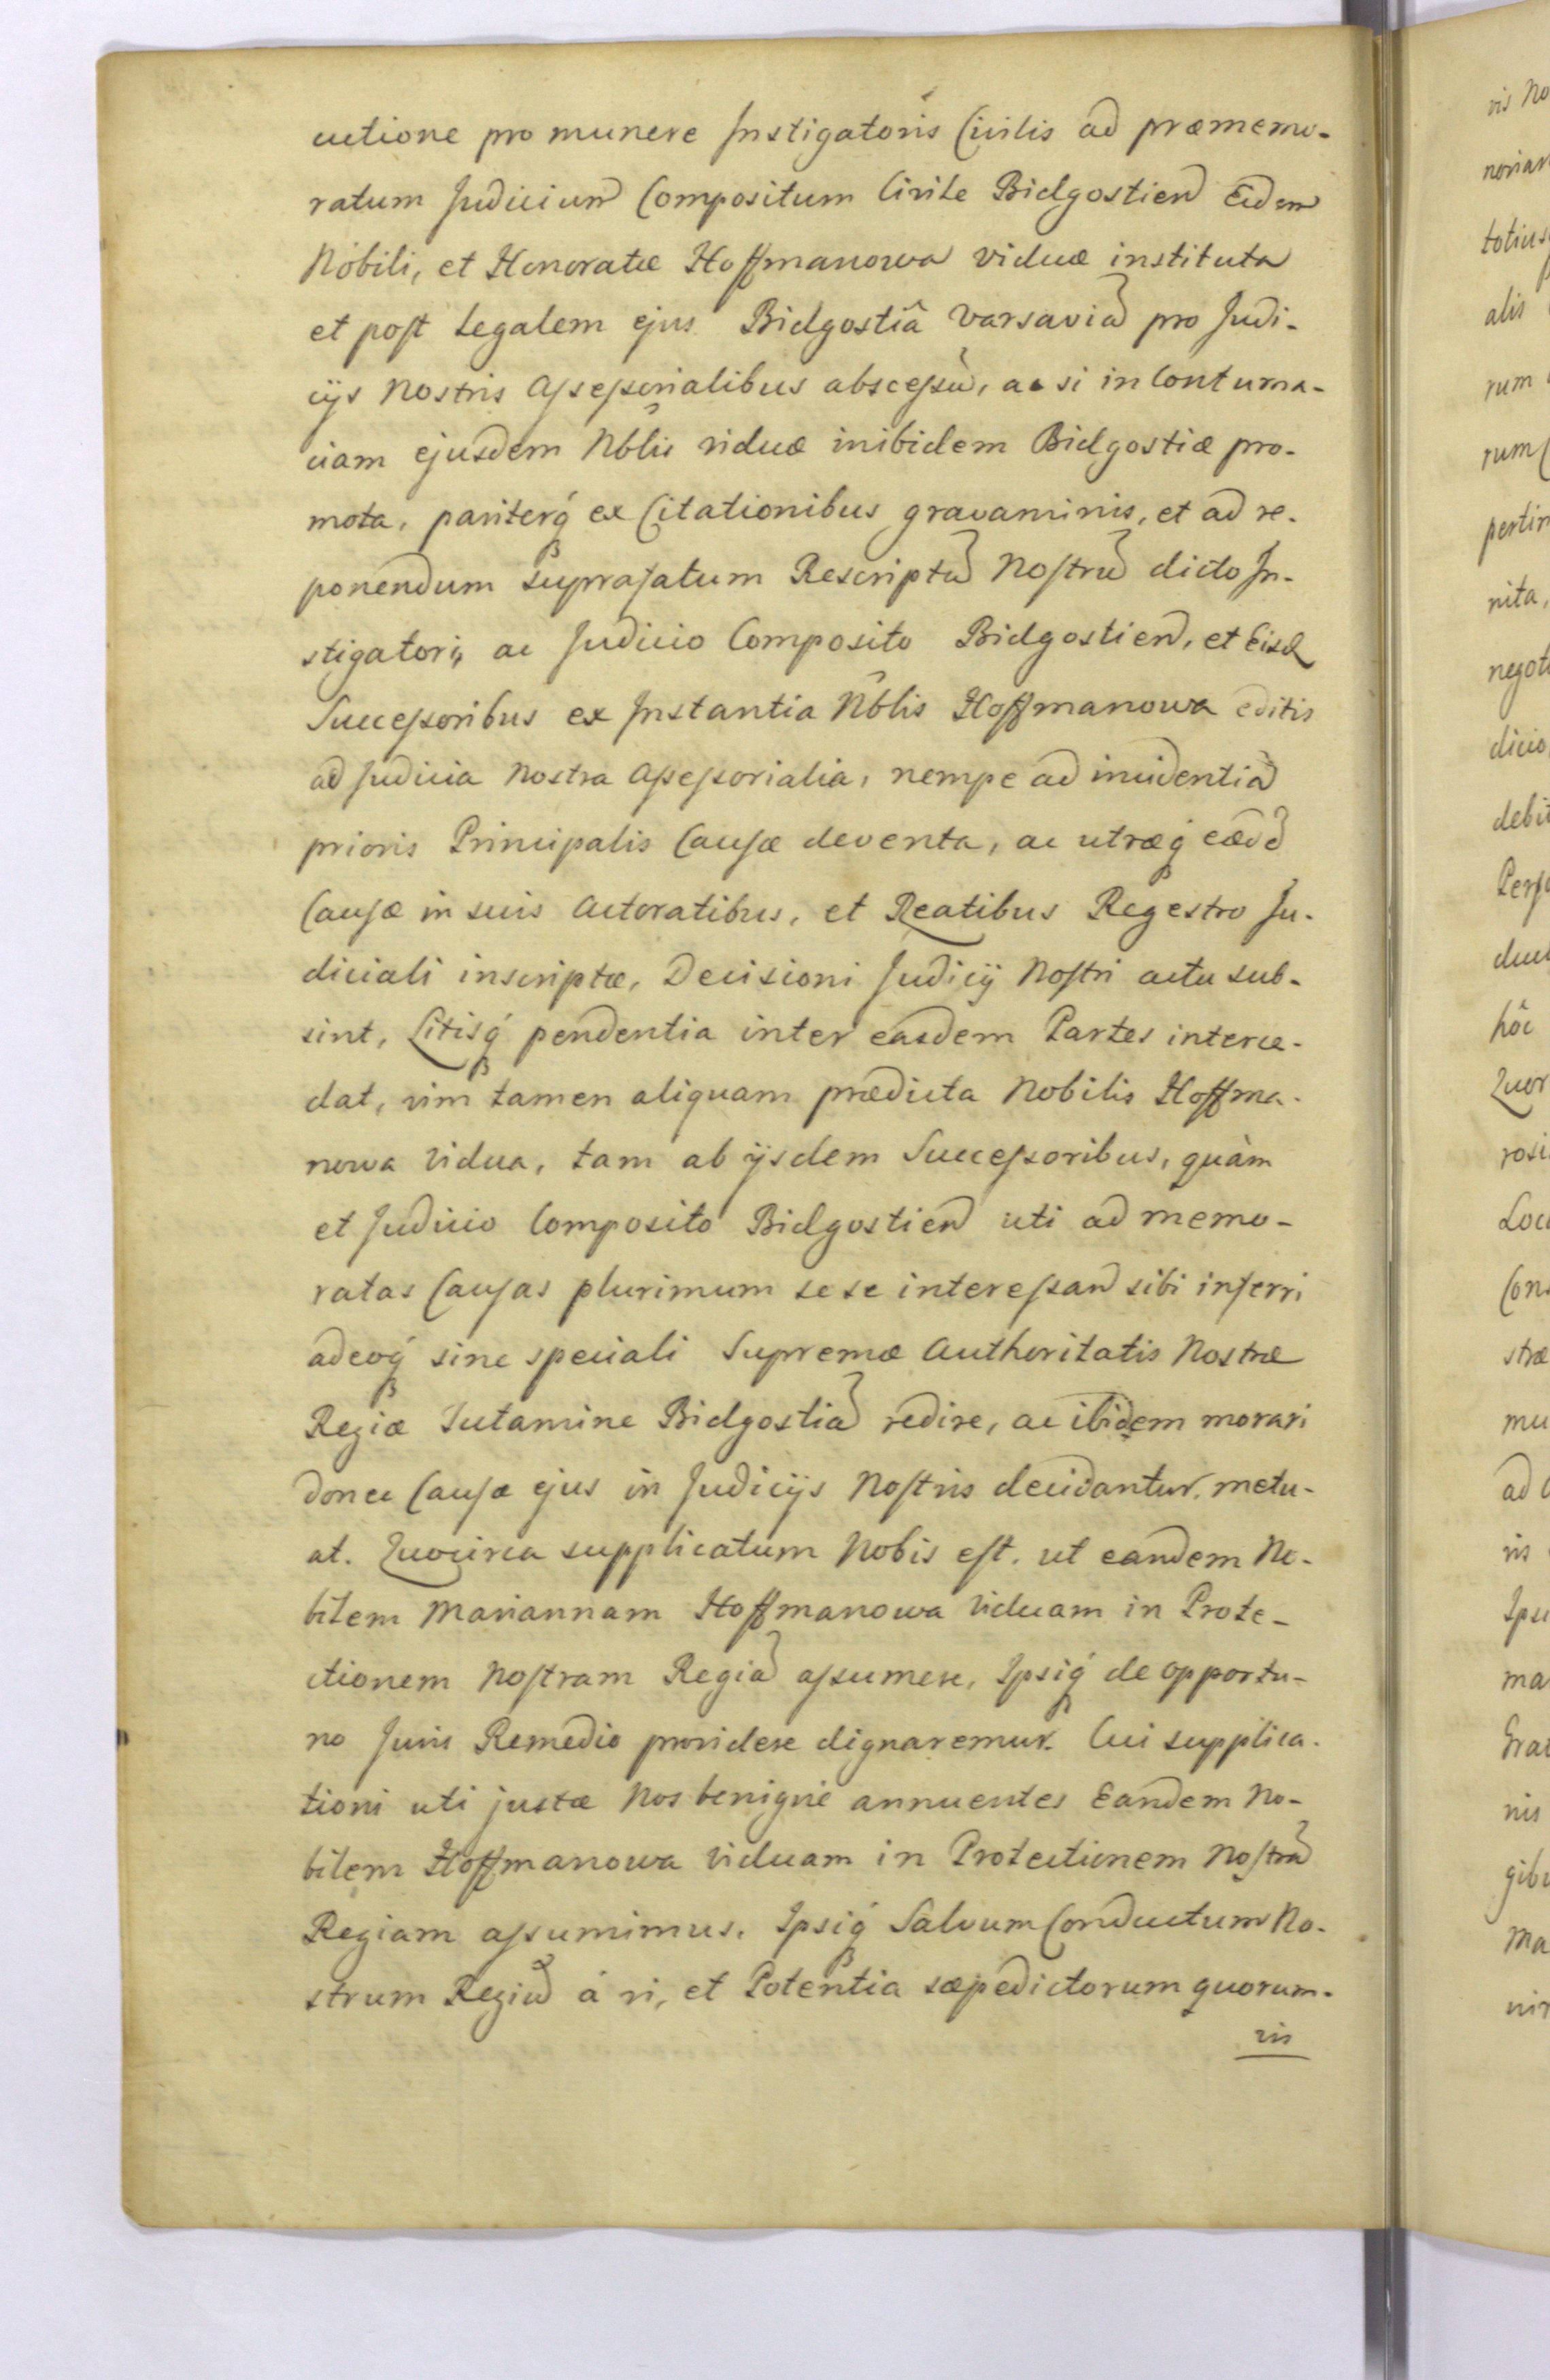 cutione pro munere Instigatoris Civilis ad præmemo-
ratum Judicium Compositum Civile Bidgostien Eidem
Nobili, et Honoratæ Hoffmanowa viduæ instituta
et post Legalem ejus Bidgostiâ Varsaviã pro Judi-
cijs Nostris Assessorialibus abscessũ, ac si in Contuma-
ciam ejusdem Nblis viduæ inibidem Bidgostiæ pro-
mota, pariterq́ ex Citationibus gravaminis, et ad re-
ponendum suprafatum Rescriptũ Nostrũ dicto In-
stigatori, ac Judicio Composito Bidgostien, et Eisd
Successoribus ex Instantia Nblis Hoffmanowa editis
ad Judicia Nostra Assessorialia, nempe ad incidentiã
prioris Principalis Causæ deventa, ac utræq́ eædẽ
Causæ in suis Actoratibus, et Reatibus Regestro Ju-
diciali inscriptæ, Decisioni Judicij Nostri actu sub-
sint, Litisq́ pendentia inter easdem Partes interce-
dat, vim tamen aliquam prædicta Nobilis Hoffma-
nowa Vidua, tam ab ijsdem Successoribus, quàm
et Judicio Composito Bidgostien uti ad memo-
ratas Causas plurimum sese interessan sibi inferri
adeoq́ sine speciali Supremæ Authoritatis Nostræ
Regiæ Tutamine Bidgostiã redire, ac ibidem morari
donec Causæ ejus in Judicijs Nostris decidantur, metu-
at. Quocirca supplicatum Nobis est, ut eandem No-
bilem Mariannam Hoffmanowa Viduam in Prote-
ctionem Nostram Regiã assumere, Ipsiq́ de opportu-
no Juris Remedio providere dignaremur. Cui supplica-
tioni uti justæ Nos benigné annuentes Eandem No-
bilem Hoffmanowa Viduam in Protectionem Nostrã
Regiam assumimus, Ipsiq́ Salvum Conductum No-
strum Regiũ á vi, et Potentia sæpedictorum quorum-
vis